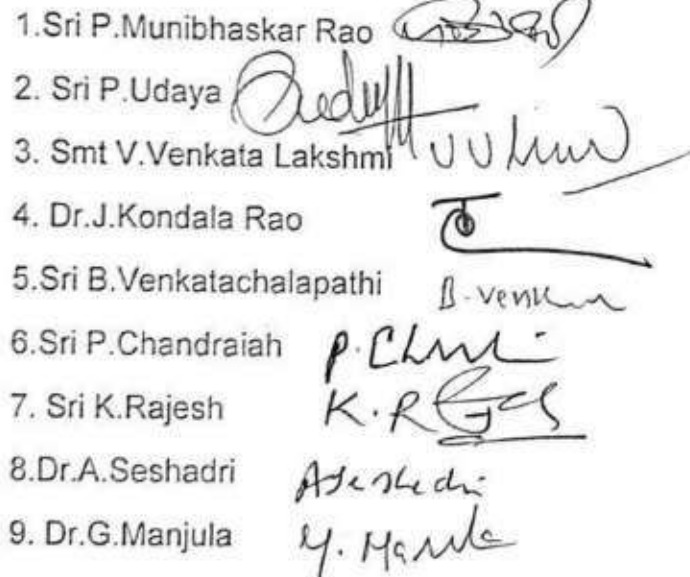 1.Sri P.Munibhaskar Rao
2. Sri P.Udaya
3. Smt V.Venkata Lakshmi
4. Dr.J.Kondala Rao
5.Sri B.Venkatachalapathi B.
6.Sri P.Chandraiah P.
7. Sri K.Rajesh K.R
8.Dr.A.Seshadri Aseshadri
9. Dr.G.Manjula